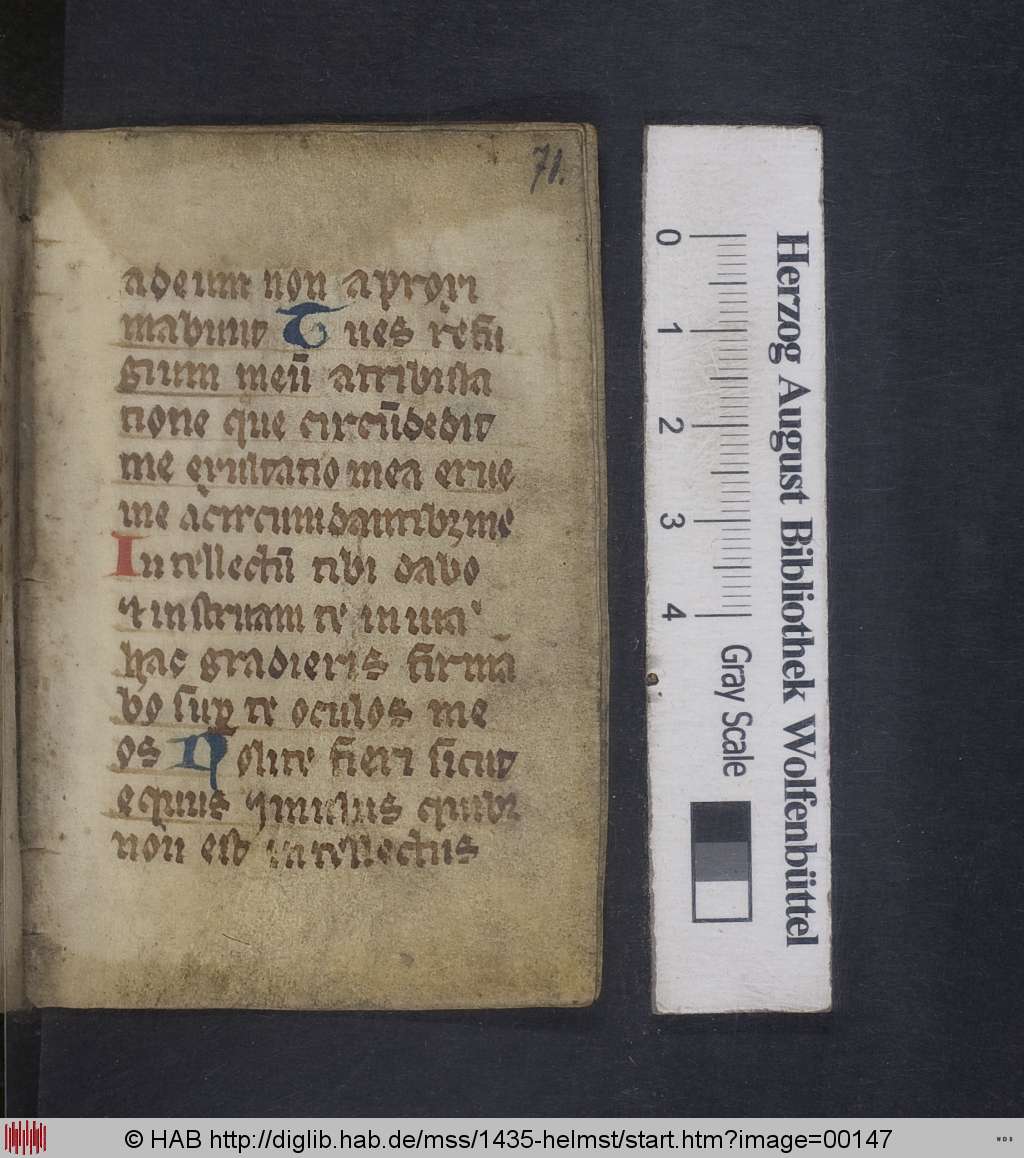 71.
adeum non aproxi
mabunt Tu es refu
gium meū atribula
tione que circūdedit
me exultatio mea erue
me a circumdantibꝫ me
Intellectū tibi dabo
⁊ instruam te in uia
hac gradieris firma
bo suꝑ te oculos me
os Nolite fieri sicut
equus ⁊ mulus quibꝫ
non est intellectus
0 1 2 3 4
Gray Scale
Herzog August Bibliothek Wolfenbüttel
© HAB http://diglib.hab.de/mss/1435-helmst/start.htm?image=00147